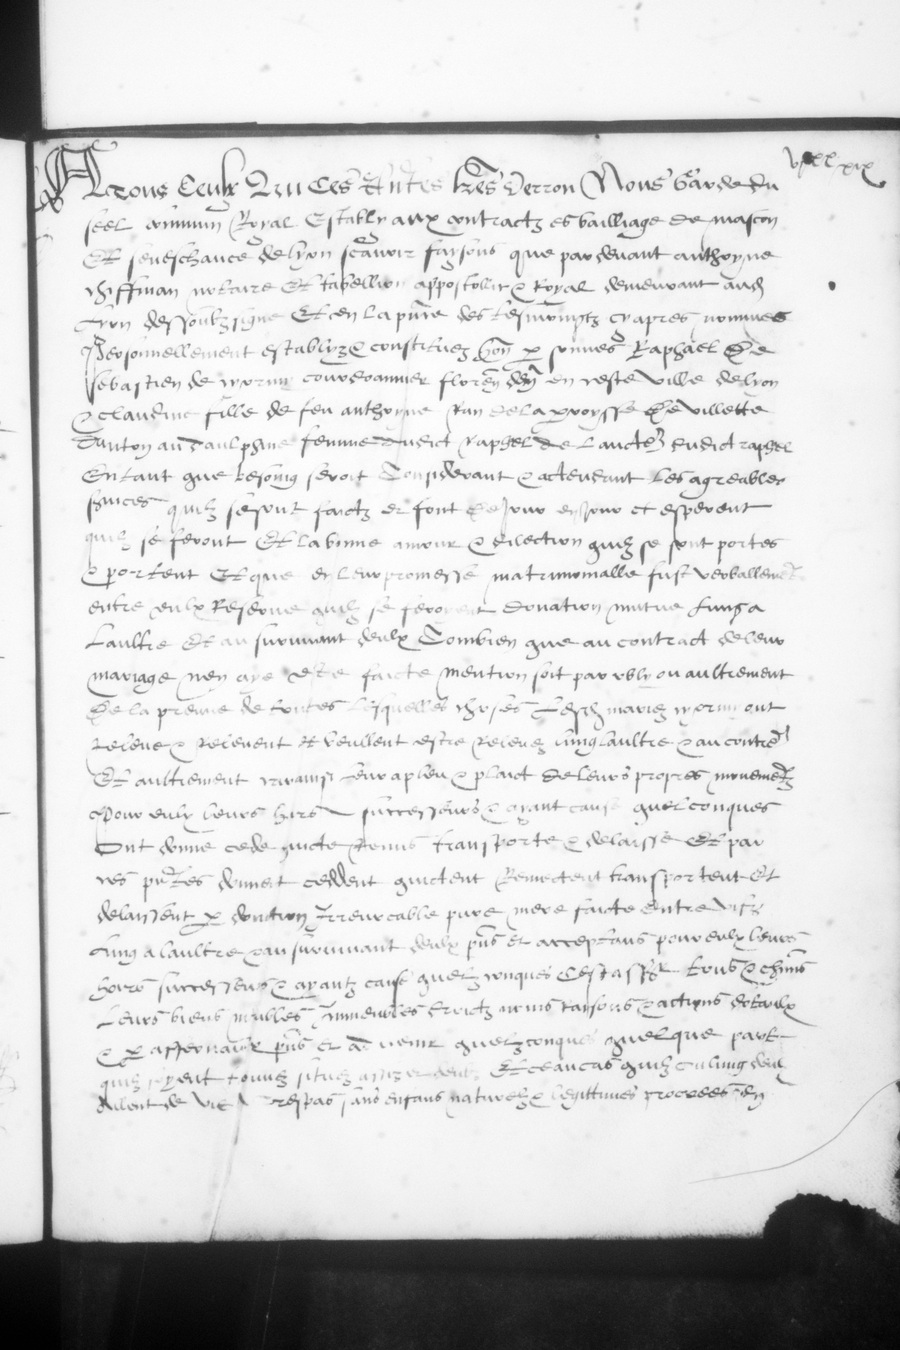 A tous Ceulx Qui Ces pntes Lres verron Nous Garde du
seel commun Royal Estably aux contractz es bailliage de mascon
Et seneschaucee de lyon scavoir faysons que par devant anthoyne
notaire Et tabellion appostolic & Royal demeurant aud
lyon dessoubz signe Et en la pnce des tesmoingtz cy apres nommes
Personnellement establyz & constituez hon persones Raphael De
sebastien de courdoannier floren dmt en ceste ville de lyon
& claudine fille de feu anthoyne de la parroysse De villette
danton au daulphine femme dudict raphel de Laucte dudict raphel
Entant que besoing seroit Considerant & actendant les agreables
services quilz se sont faictz et font De Jour en Jour et esperent
quilz se feront Et la bonne amour & dilection quilz se sont portes
& portent Et que en leur promesse matrimonialle fust verballement
entre eulx Reserve quilz se feroyent donation mutue Lung a
Laultre Et au survivant deulx Combien que au contract de leur
mariage nen aye este faicte mention soit par obly ou aultrement
De la preuve de toutes Lesquelles choses Lesdz mariez ont
Releve & Relevent et veullent estre Relevez lung laultre & au contre
Et aultrement de leurs propres mouvemetz
Pour eulx leurs hoirs successeurs & ayant cause quelconques
Ont donne cede quicte Remis transporte & delaisse Et par
ces pntes donnet ceddent quictent Remectent transportent Et
delaissent par donation Irrevocable pure mere faicte entre vifz
Lung a laultre & au survivant deulx pns et acceptans pour eulx leurs
hoirs successeurs & ayantz cause quelzconques Cest asscr tous & chuns
Leurs biens meubles Immeubles droictz noms raisons & actions
& pns et advenir quelzconques quelque part
quilz soyent situez Et ce au cas quilz ou lung deulx
allent de vie a trespas sans enfans naturelz & legittimes procrees en